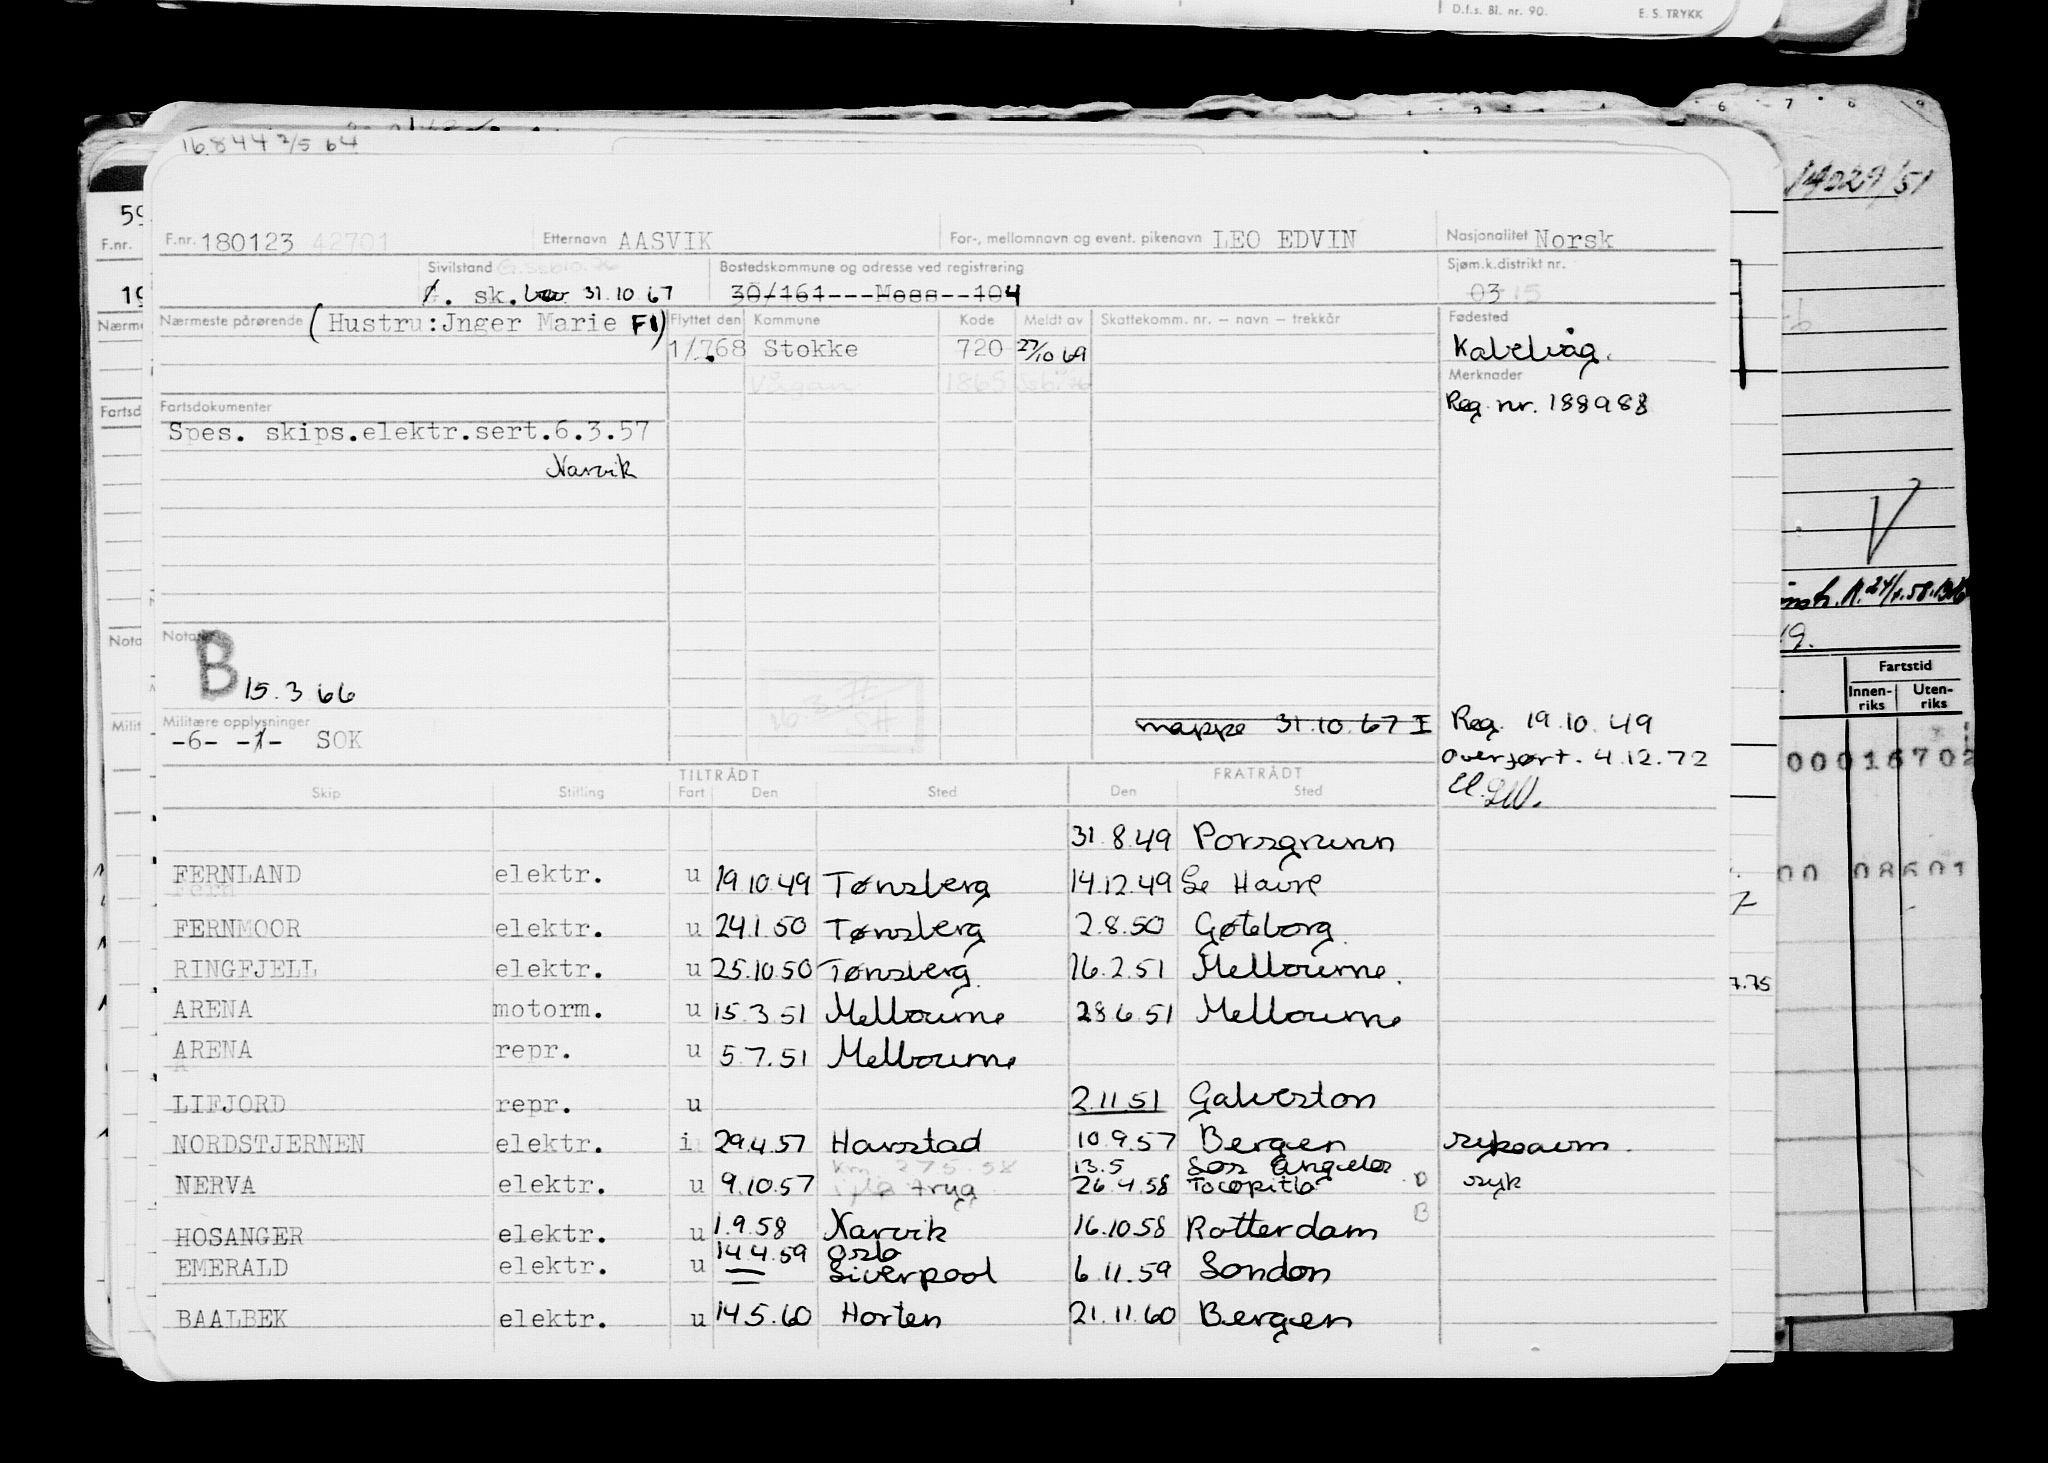 D.f.s. Bl. nr. 90. E. S. TRYKK
16844 2/5 64
14029/51
F.nr. 180123 42701 Etternavn AASVIK For-, mellomnavn og event. pikenavn LEO EDVIN Nasjonalitet Norsk
Sivilstand Bostedskommune og adresse ved registrering Sjøm.k.distrikt nr.
sk. 31.10.67 30/161---Moss--104 03 15
Nærmeste pårørende (Hustru:Jnger Marie Flyttet den Kommune Kode Meldt av Skattekomm. nr. – navn – trekkår Fødested
1/7.68 Stokke 720 27/10 69 Kabelvåg.
Vågan 1865 Merknader
Fartsdokumenter Reg. nr. 188988
Spes. skips.elektr.sert.6.3.57
Narvik
Notater
B 15.3 66
Militære opplysninger mappe 31.10.67 I Reg. 19.10.49
-6- -1- SOK Overført. 4.12.72
TILTRÅDT FRATRÅDT
Skip Stilling Fart Den Sted Den Sted
31.8.49 Porsgrunn
FERNLAND elektr. u 19.10.49 Tønsberg 14.12.49 Le Havre
FERNMOOR elektr. u 24.1.50 Tønsberg 2.8.50 Gøteborg.
RINGFJELL elektr. u 25.10.50 Tønsberg. 16.2.51 Melbourne.
ARENA motorm. u 15.3.51 Melbourne 28.6.51 Melbourne
ARENA repr. u 5.7.51 Melbourne
LIFJORD repr. u 2.11.51 Galveston
NORDSTJERNEN elektr. i 29.4.57 Harstad 10.9.57 Bergen
13.5 Los Angeles
NERVA elektr. u 9.10.57 26.4.58 Tocopilla syk
HOSANGER elektr. u 1.9.58 Narvik 16.10.58 Rotterdam
14.4.59 Oslo
EMERALD elektr. u Liverpool 6.11.59 London
BAALBEK elektr. u 14.5.60 Horten 21.11.60 Bergen
Fartstid
Innen-riks Uten-riks
7.75